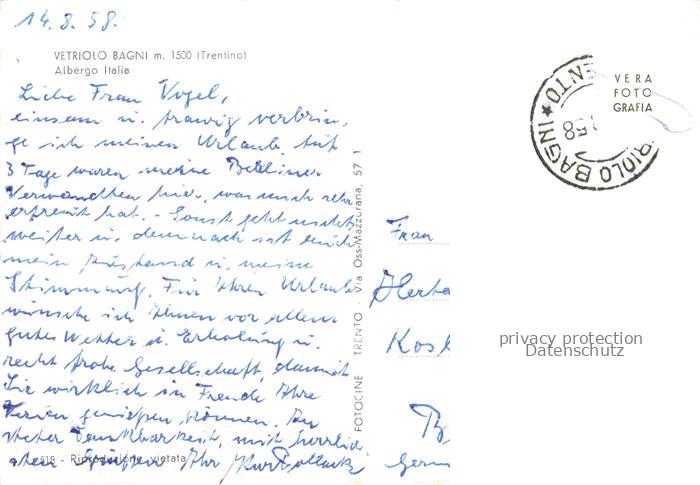 14.8.58.
VETRIOLO BAGNI m. 1500 (Trentino)
Albergo Italia
Liebe Frau Vogel,
einsam u. traurig verbrin
ge ich meinen Urlaub. Auf
3 Tage waren meine Berliner
Verwandten hier, was mich sehr
erfreut hat. - Sonst geht nichts
weiter u. demnach ist auch
mein Zustand u. meine
Stimmung. Für Ihren Urlaub
wünsche ich Ihnen vor allem
gutes Wetter u. Erholung u.
recht frohe Gesellschaft, damit
Sie wirklich in Freude Ihre
Ferien genießen können. In
steter Dankbarkeit, mit herzlich
sten Grüßen Ihr Kurt
518 - Riproduzione vietata
FOTOCINE TRENTO - Via Oss-Mazzurana, 57 1
VERA
FOTO
GRAFIA
RIOLO BAGNI ★ ENTO
58
Frau
Herta
Kos
privacy protection
Datenschutz